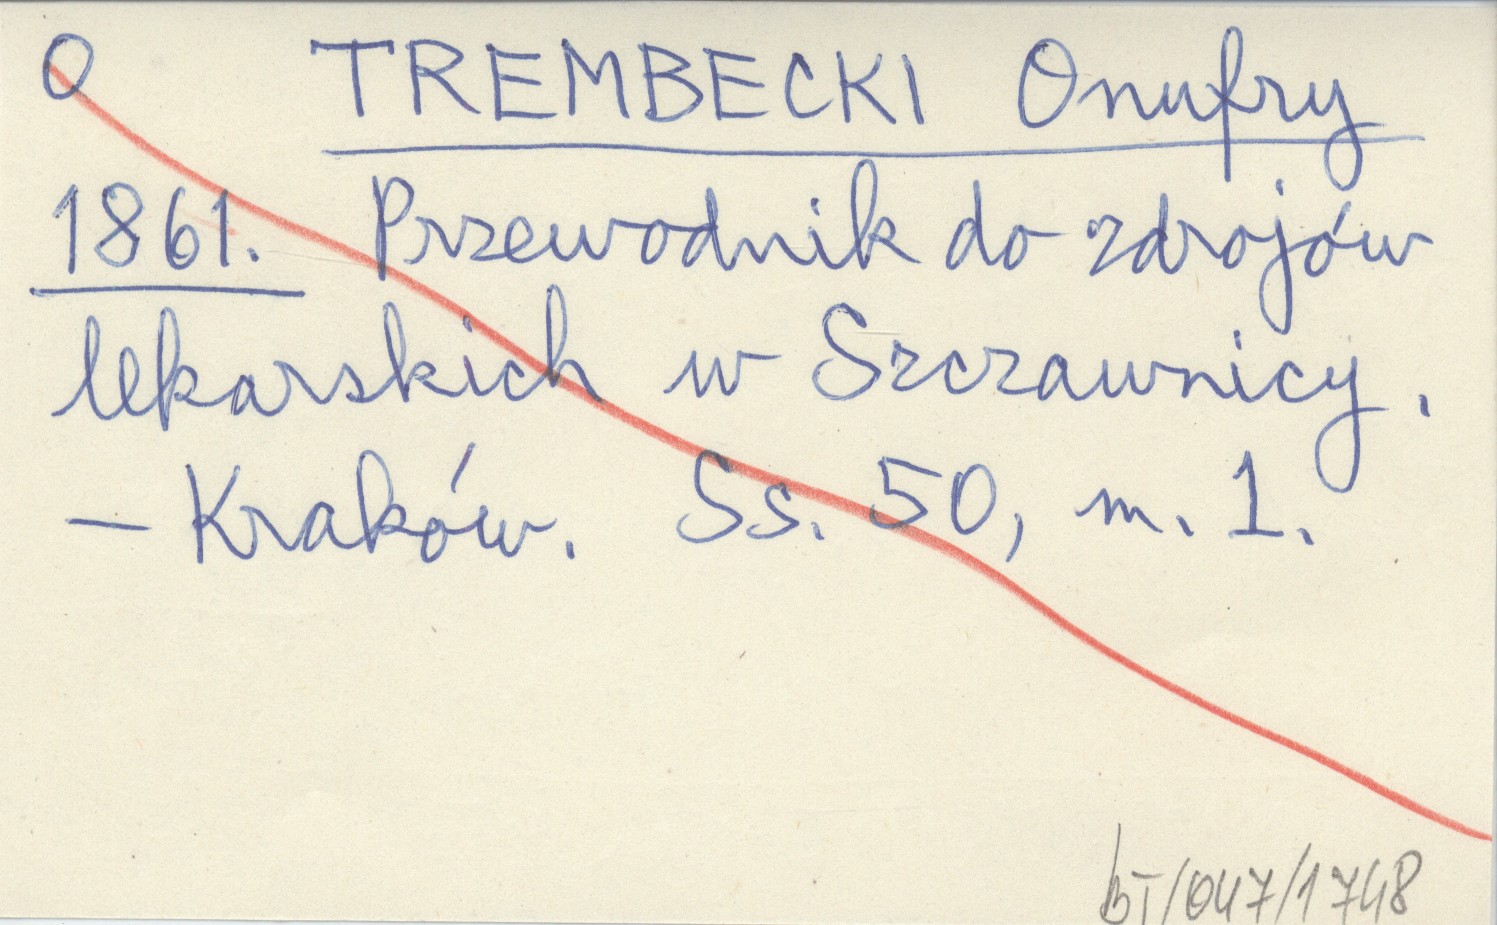 O TREMBECKI Onufry
1861. Przewodnik do zdrojów
lekarskich w Szczawnicy.
— Kraków. Ss. 50, m. 1.
BT/047/1748